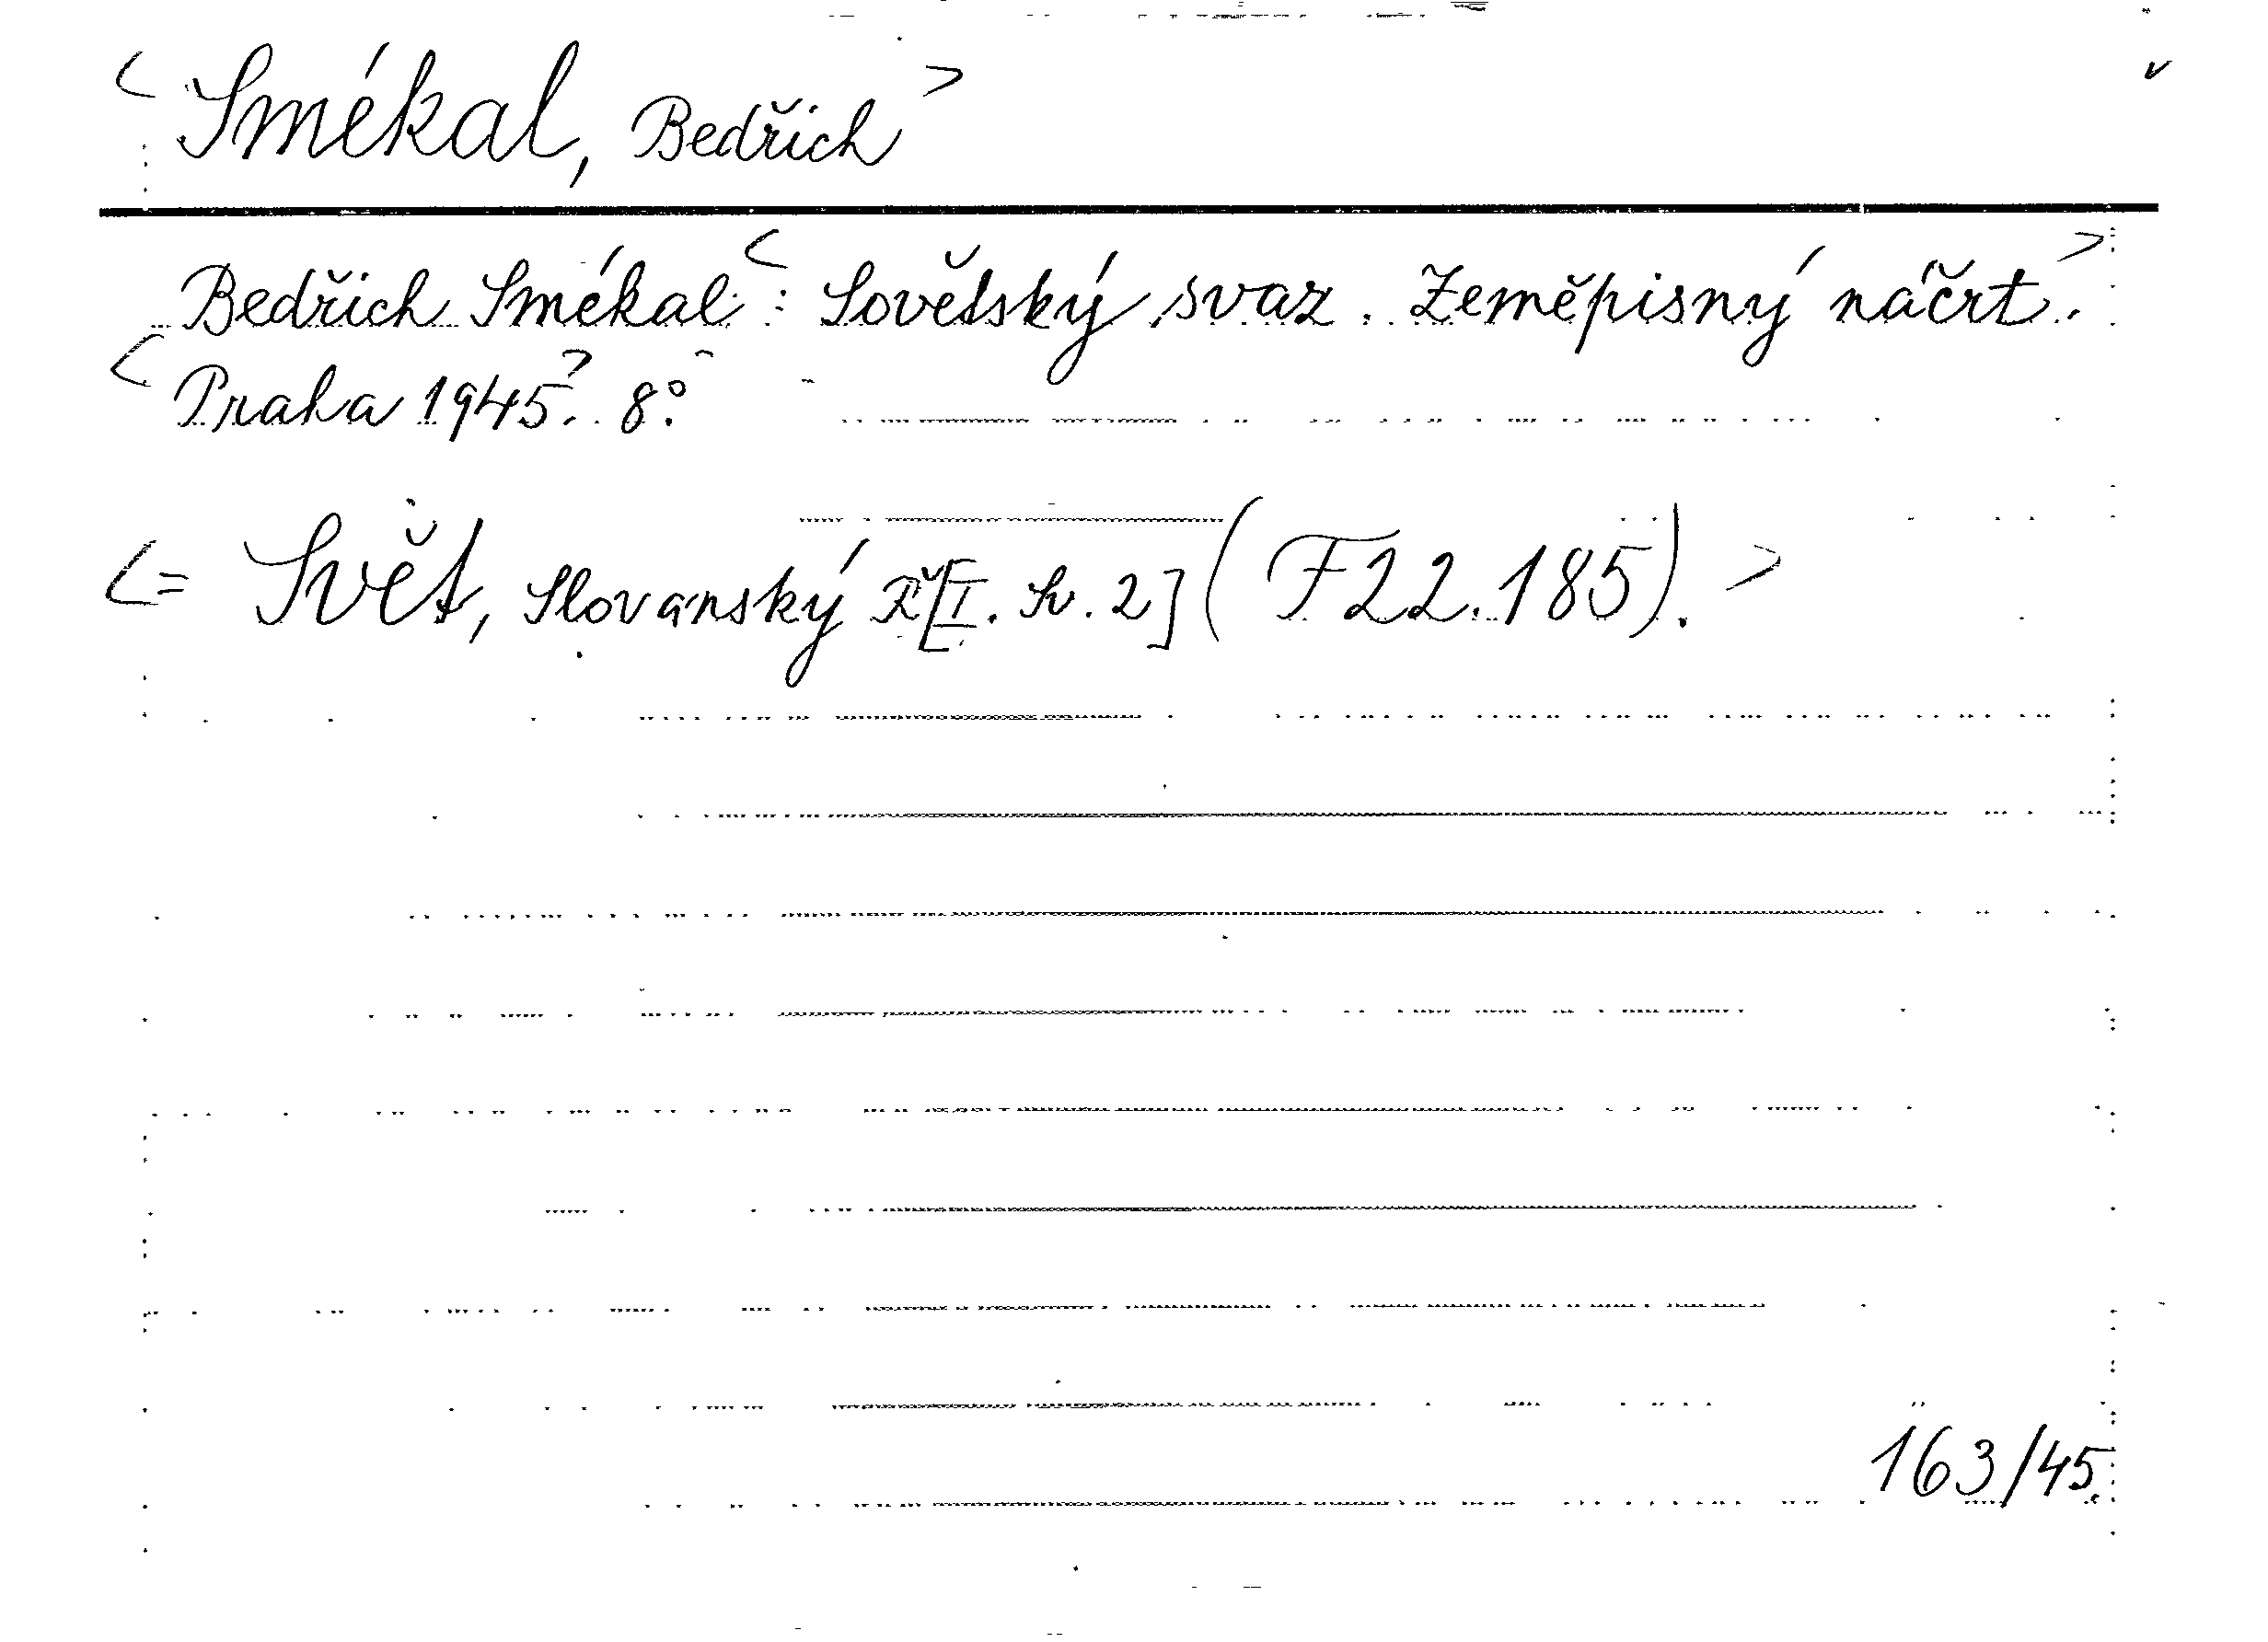 < Smékal, Bedřich > v
Bedřich Smékal: < Sovětský svaz. Zeměpisný náčrt. >
< Praha 1945. > 8°.
<= Svět, Slovanský Ř[I. Sv. 2] (F22.185). >
163/45.